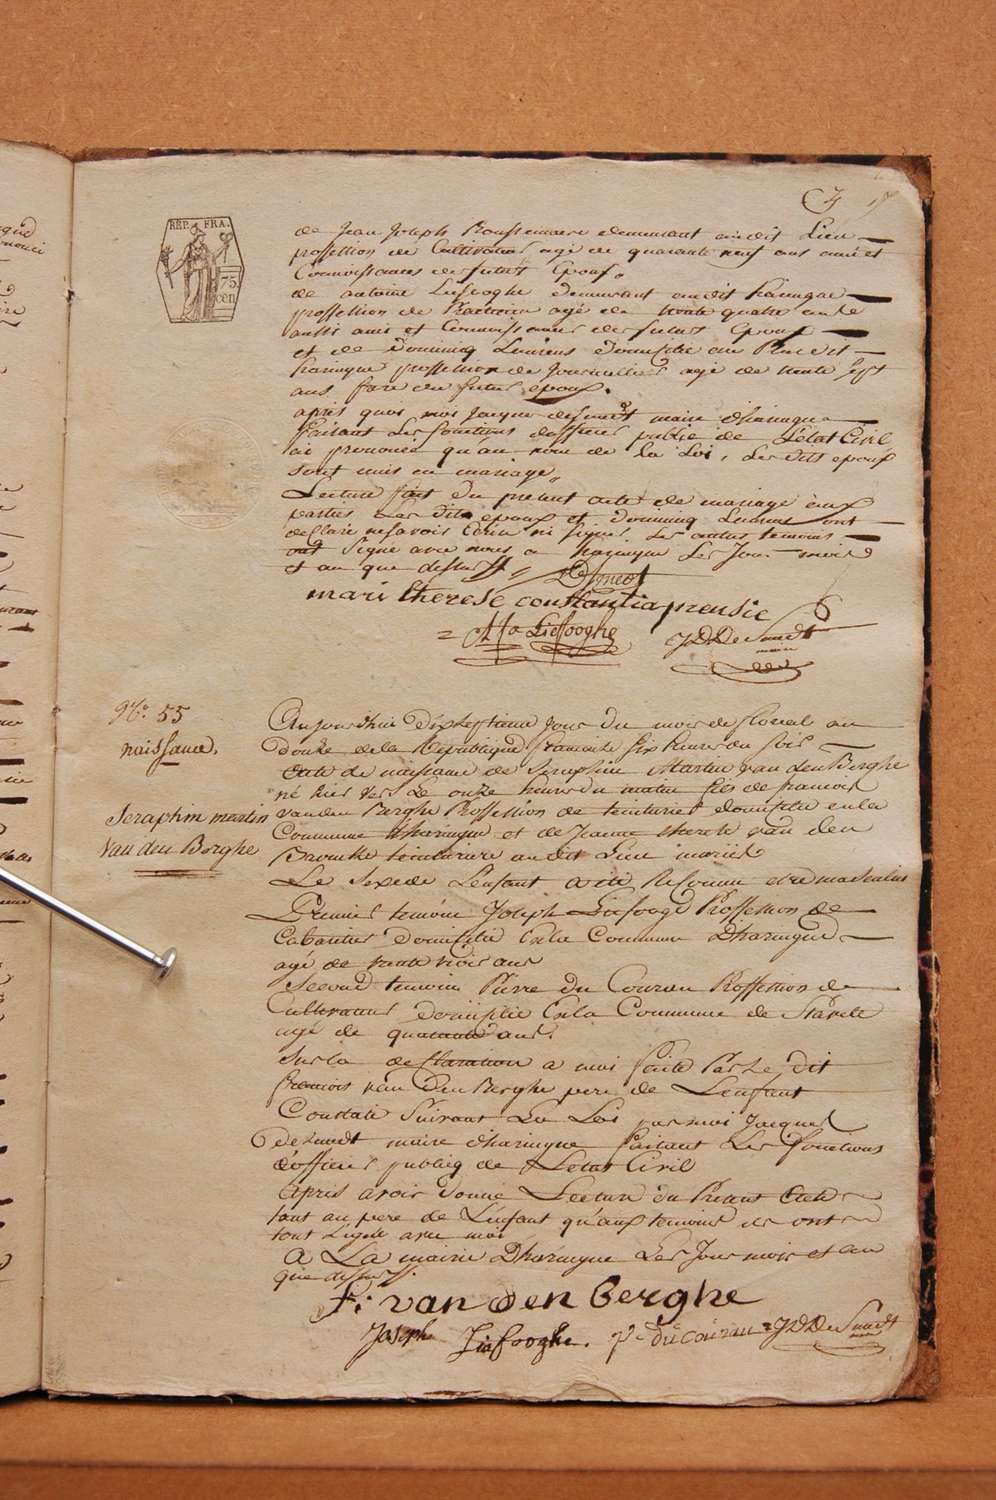 REP. FRA.
75
cen
de Jean Joseph Roussemaere demeurant audit Lieu
proffesion de Cultivateur agé de quarante neuf ans ami et
Connoissances de futurs Epoux
de antoine Liefooghe demeurant audit haringue
proffesion de agé de trente quatre ans le
aussi ami et Connoissances des futurs Epoux
et de Dominiq Laurens domicilié au
haringue proffesion de Journallier agé de trente sept
ans du futur epoux.
après quoi moi Jacques deSmedt maire dharingue
faisant Les fonctions dofficier public de L'état Civil
ai prononcé qu'au nom de la Loi, Les dits epoux
sont unis en mariage
Lecture fait du present acte de mariage aux
parties Les dits epoux et Dominiq Laurens ont
declaré ne savoir Ecrire ni signer Les autres temoins
ont signé avec nous a haringue Les Jour mois
et an que dessus
mari therese constantia prensie
Liefooghe
JDDe Smedt
maire
No. 55
naissance.
Seraphim martin
Van den Berghe
Aujourdhui dixseptieme Jour du mois de floreal an
douze de la Republique francaise six heures du soir
Acte de naissance de Seraphin Martin van den Berghe
né hier vers Le onze heures du matin fils de francois
van den Berghe Proffession de teinturier domicilié en la
Commune dharingue et de Jeanne therese van den
Broucke teinturiere au dit Lieu mariés
Le Sexe de L'enfant a été Reconnu etre masculin
Premier temoin Joseph Liefooge Proffession de
Cabaretier domicilié En la Commune Dharingue
agé de trente trois ans
Second temoin Pierre du Courau Proffession de
Cultivateur domicilié En la Commune de Stavele
agé de quarante ans.
Sur la declaration a moi faite Par Le dit
francois van den Berghe pere de L'enfant
Constaté Suivant La Loi par moi Jacques
de Smedt maire dharingue faisant Les fonctions
d'officier publiq de L'etat Civil
Après avoir donné Lecture du Present Acte
tant au pere de L'enfant qu'aux temoins ils ont
tout signé avec moi
A La mairie Dharingue Les Jour mois et an
que dessus.
f: van den berghe
Joseph Liefooghe. p: du courau JDDe Smedt